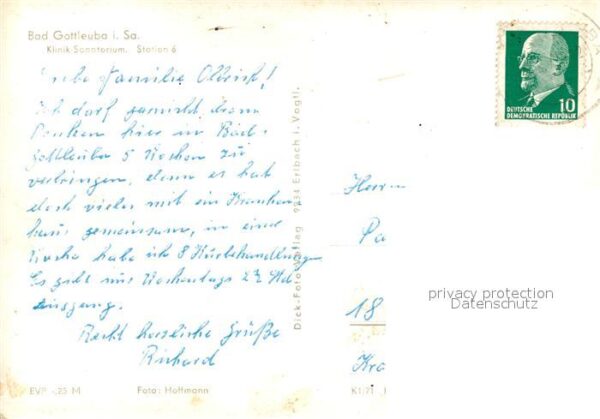 Bad Gottleuba i. Sa.
Klinik-Sanatorium. Station 6
Liebe Familie
Ich darf
hier in Bad-
gottleuba 5 Wochen zu
verbringen, denn es hat
doch vieles mit ein Kranken
haus gemeinsam, in einer
Woche habe ich 8 Kurbehandlungen
Es gibt nur Wochentags 2½ Std
Ausgang.
Recht herzliche Grüße
Richard
EVP -,25 M
Foto: Hoffmann
Dick-Foto-Verlag 9934 Erlbach i. Vogtl.
DEUTSCHE
DEMOKRATISCHE REPUBLIK
10
Herrn
Pa
18
Kra
K1/71
privacy protection
Datenschutz